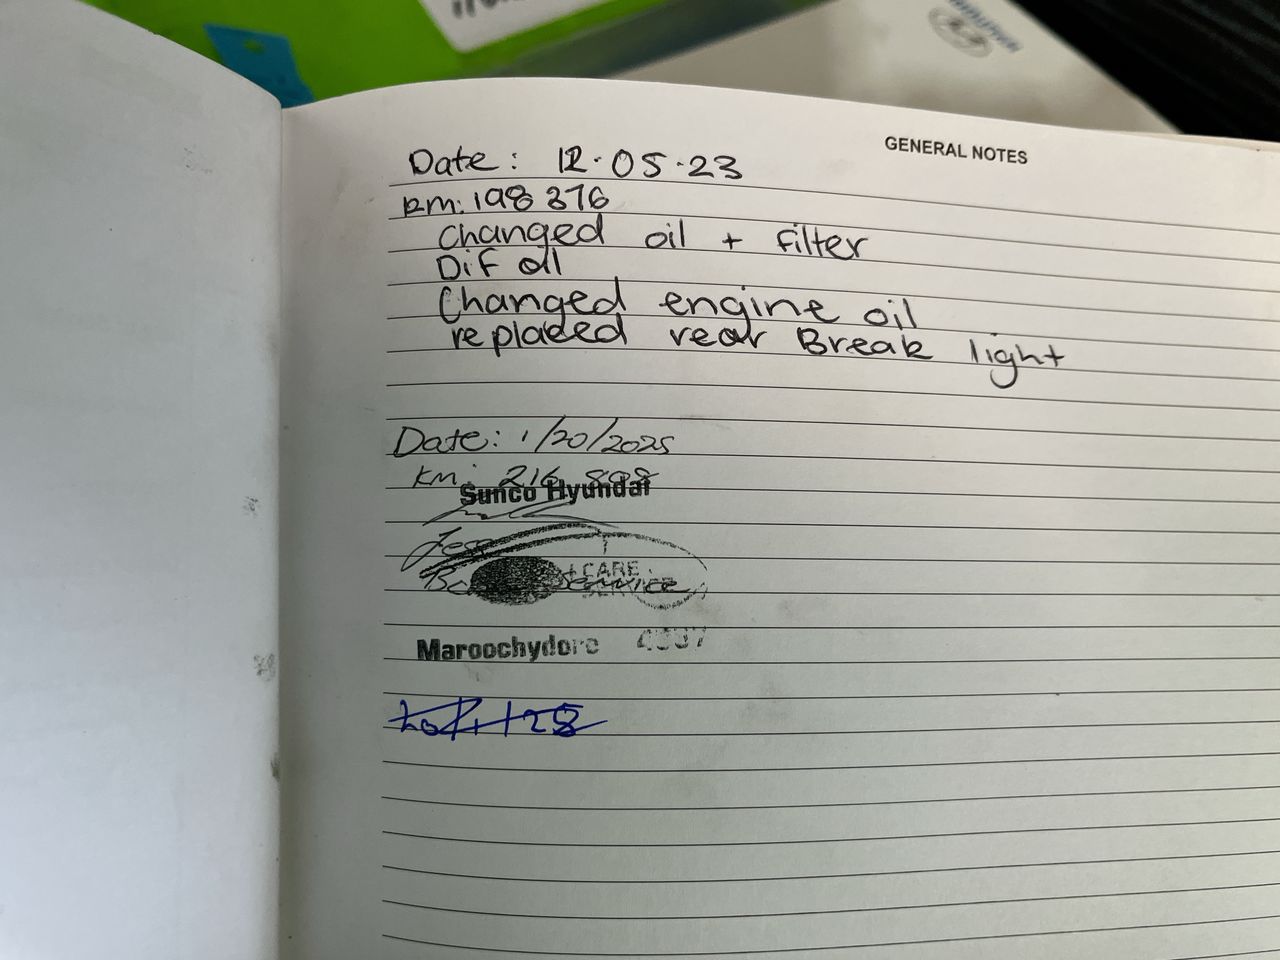 GENERAL NOTES
Date: 12.05.23
km: 198 376
Changed oil + filter
Dif oil
Changed engine oil
replaced rear Break light
Date: 1/20/2025
km: 216 898
Sunco Hyundai
CARE
Service
Maroochydore